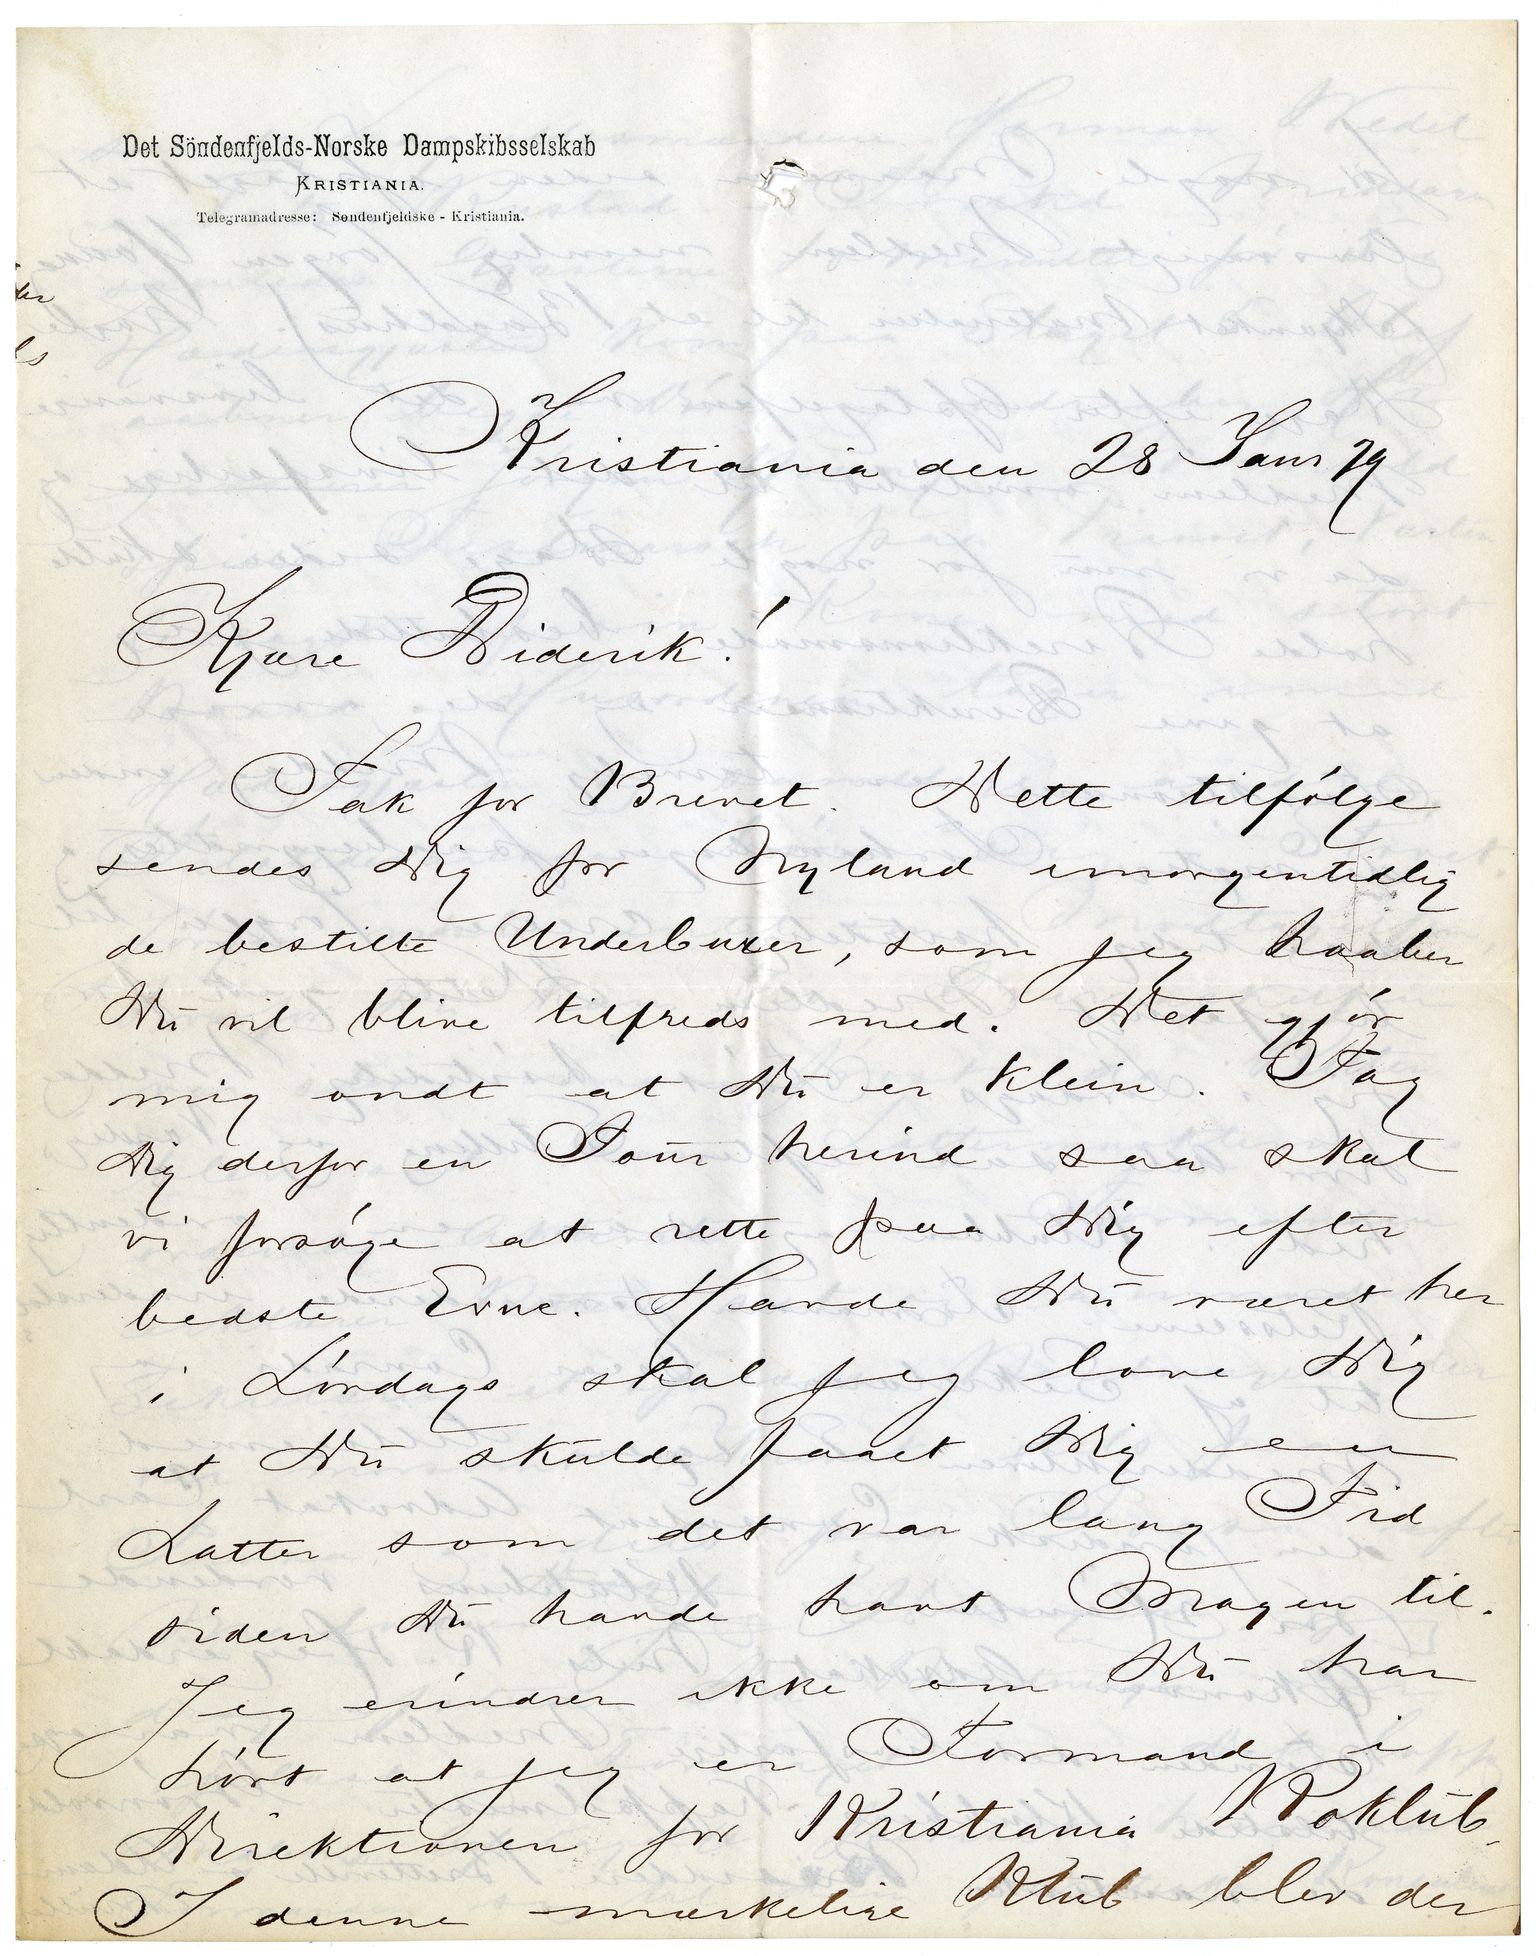 Det Söndenfjelds-Norske Dampskibsselskab
KRISTIANIA.
Telegramadresse: Søndenfjeldske - Kristiania.
Kristiania den 28 Janr 79
Kjære Diderik!
Tak for Brevet. Dette tilfølge
sendes Dig for Nyland imorgentidlig
de bestilte Underbuxer, som jeg haaber
Du vil blive tilfreds med. Det gjör
mig ondt at Du er klein. Tag
Dig derfor en Tour herind saa skal
vi forsøge at rette paa Dig efter
bedste Evne. Havde Du været her
i Lørdags skal jeg love Dig
at Du skulde faaet Dig en
Latter som det var lang Tid
siden Du havde havt Magen til.
Jeg erindrer ikke om Du har
hørt at jeg er Formand i
Direktionen for Kristiania Roklub.
I denne mærkelige Klub blev der